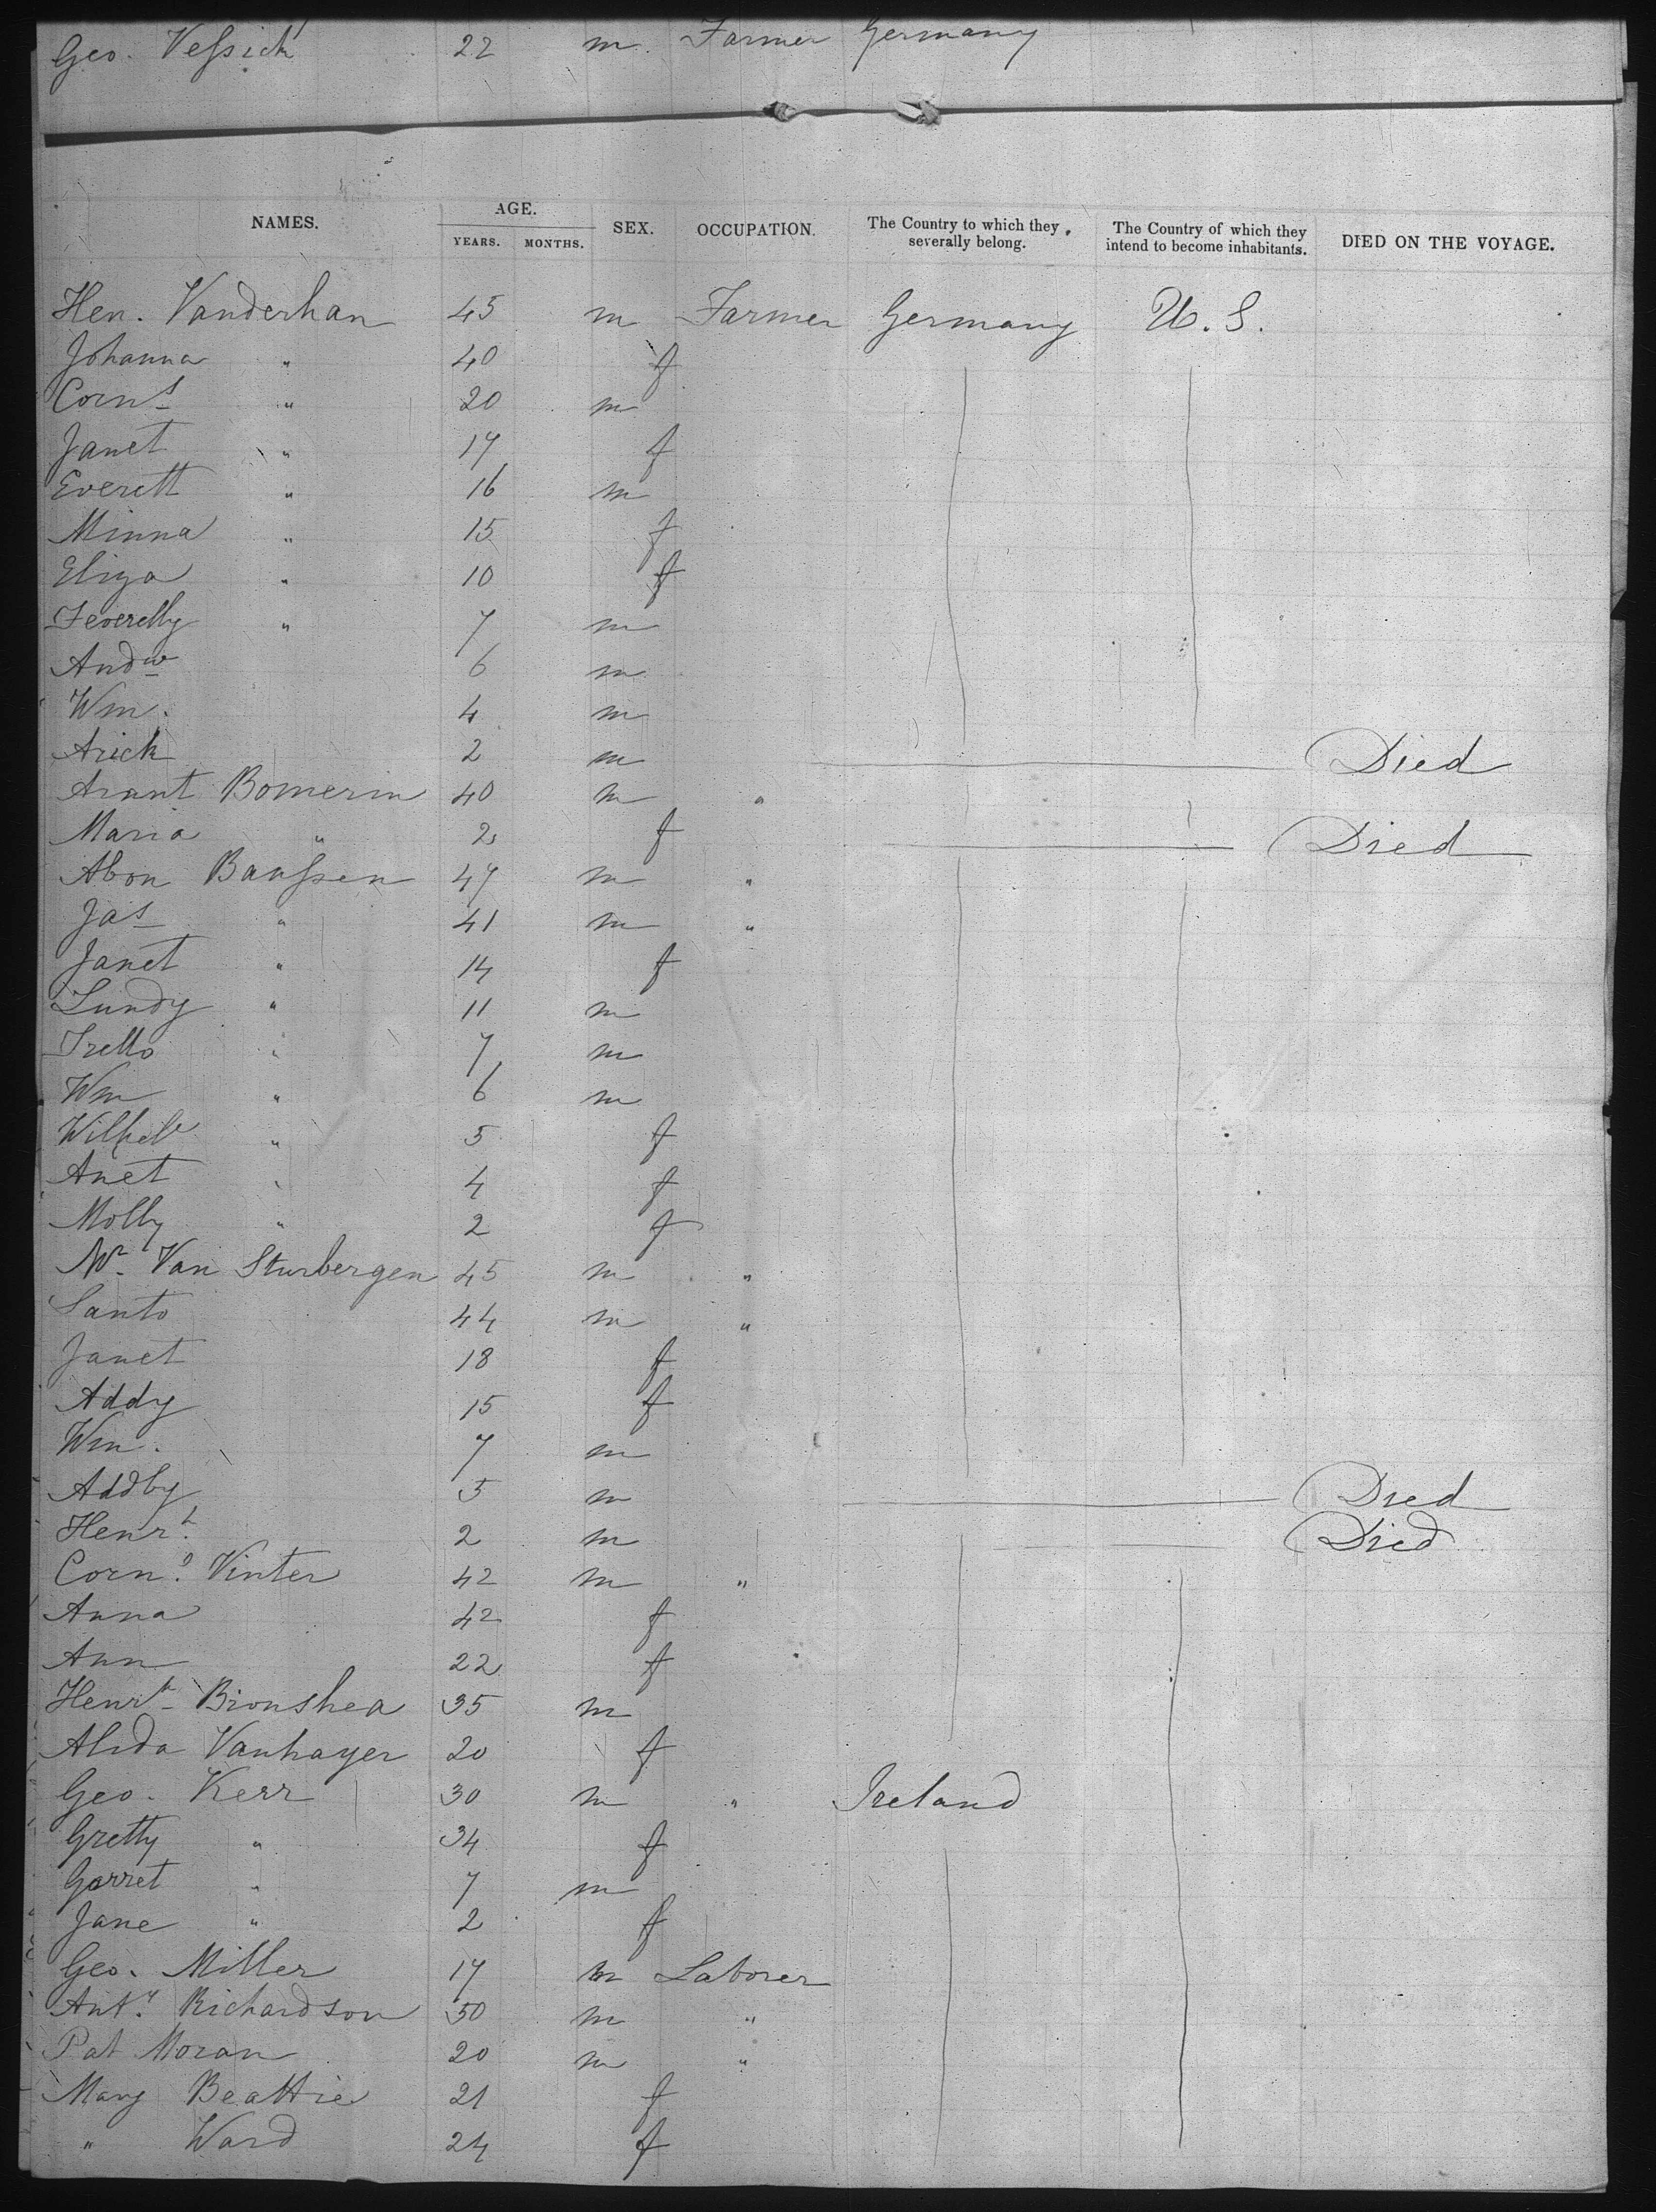 Geo. Vessick 22 m. Farmer Germany
NAMES. AGE. YEARS. MONTHS. SEX. OCCUPATION. The Country to which they severally belong. The Country of which they intend to become inhabitants. DIED ON THE VOYAGE.
Hen. Vanderhan 45 m Farmer Germany U.S.
Johanna " 40 f
Corns " 20 m
Janet " 17 f
Everett " 16 m
Minna " 15 f
Eliza " 10 f
Feverelly " 7 m
Andw 6 m
Wm. 4 m
Arick 2 m Died
Arant Bomerin 40 m "
Maria " 2 f Died
Abon Banssen 47 m "
Jas " 41 m "
Janet " 14 f
Lundy " 11 m
Tretto " 7 m
Wm " 6 m
" 5 f
Anet " 4 f
Molly " 2 f
Van Sturbergen 45 m "
Santo 44 m "
Janet 18 f
Addy 15 f
Wm. 7 m
Addby 5 m Died
Henrk 2 m Died
Corns Vinter 42 m "
Anna 42 f
Ann 22 f
Henrk Bronshea 35 m
Alida Vanhayer 20 f
Geo. Kerr 30 m " Ireland
Gretty " 34 f
Garret " 7 m
Jane " 2 f
Geo. Miller 17 m Laborer
Anty Richardson 50 m "
Pat Moran 20 m "
Mary Beattie 21 f
" Ward 24 f